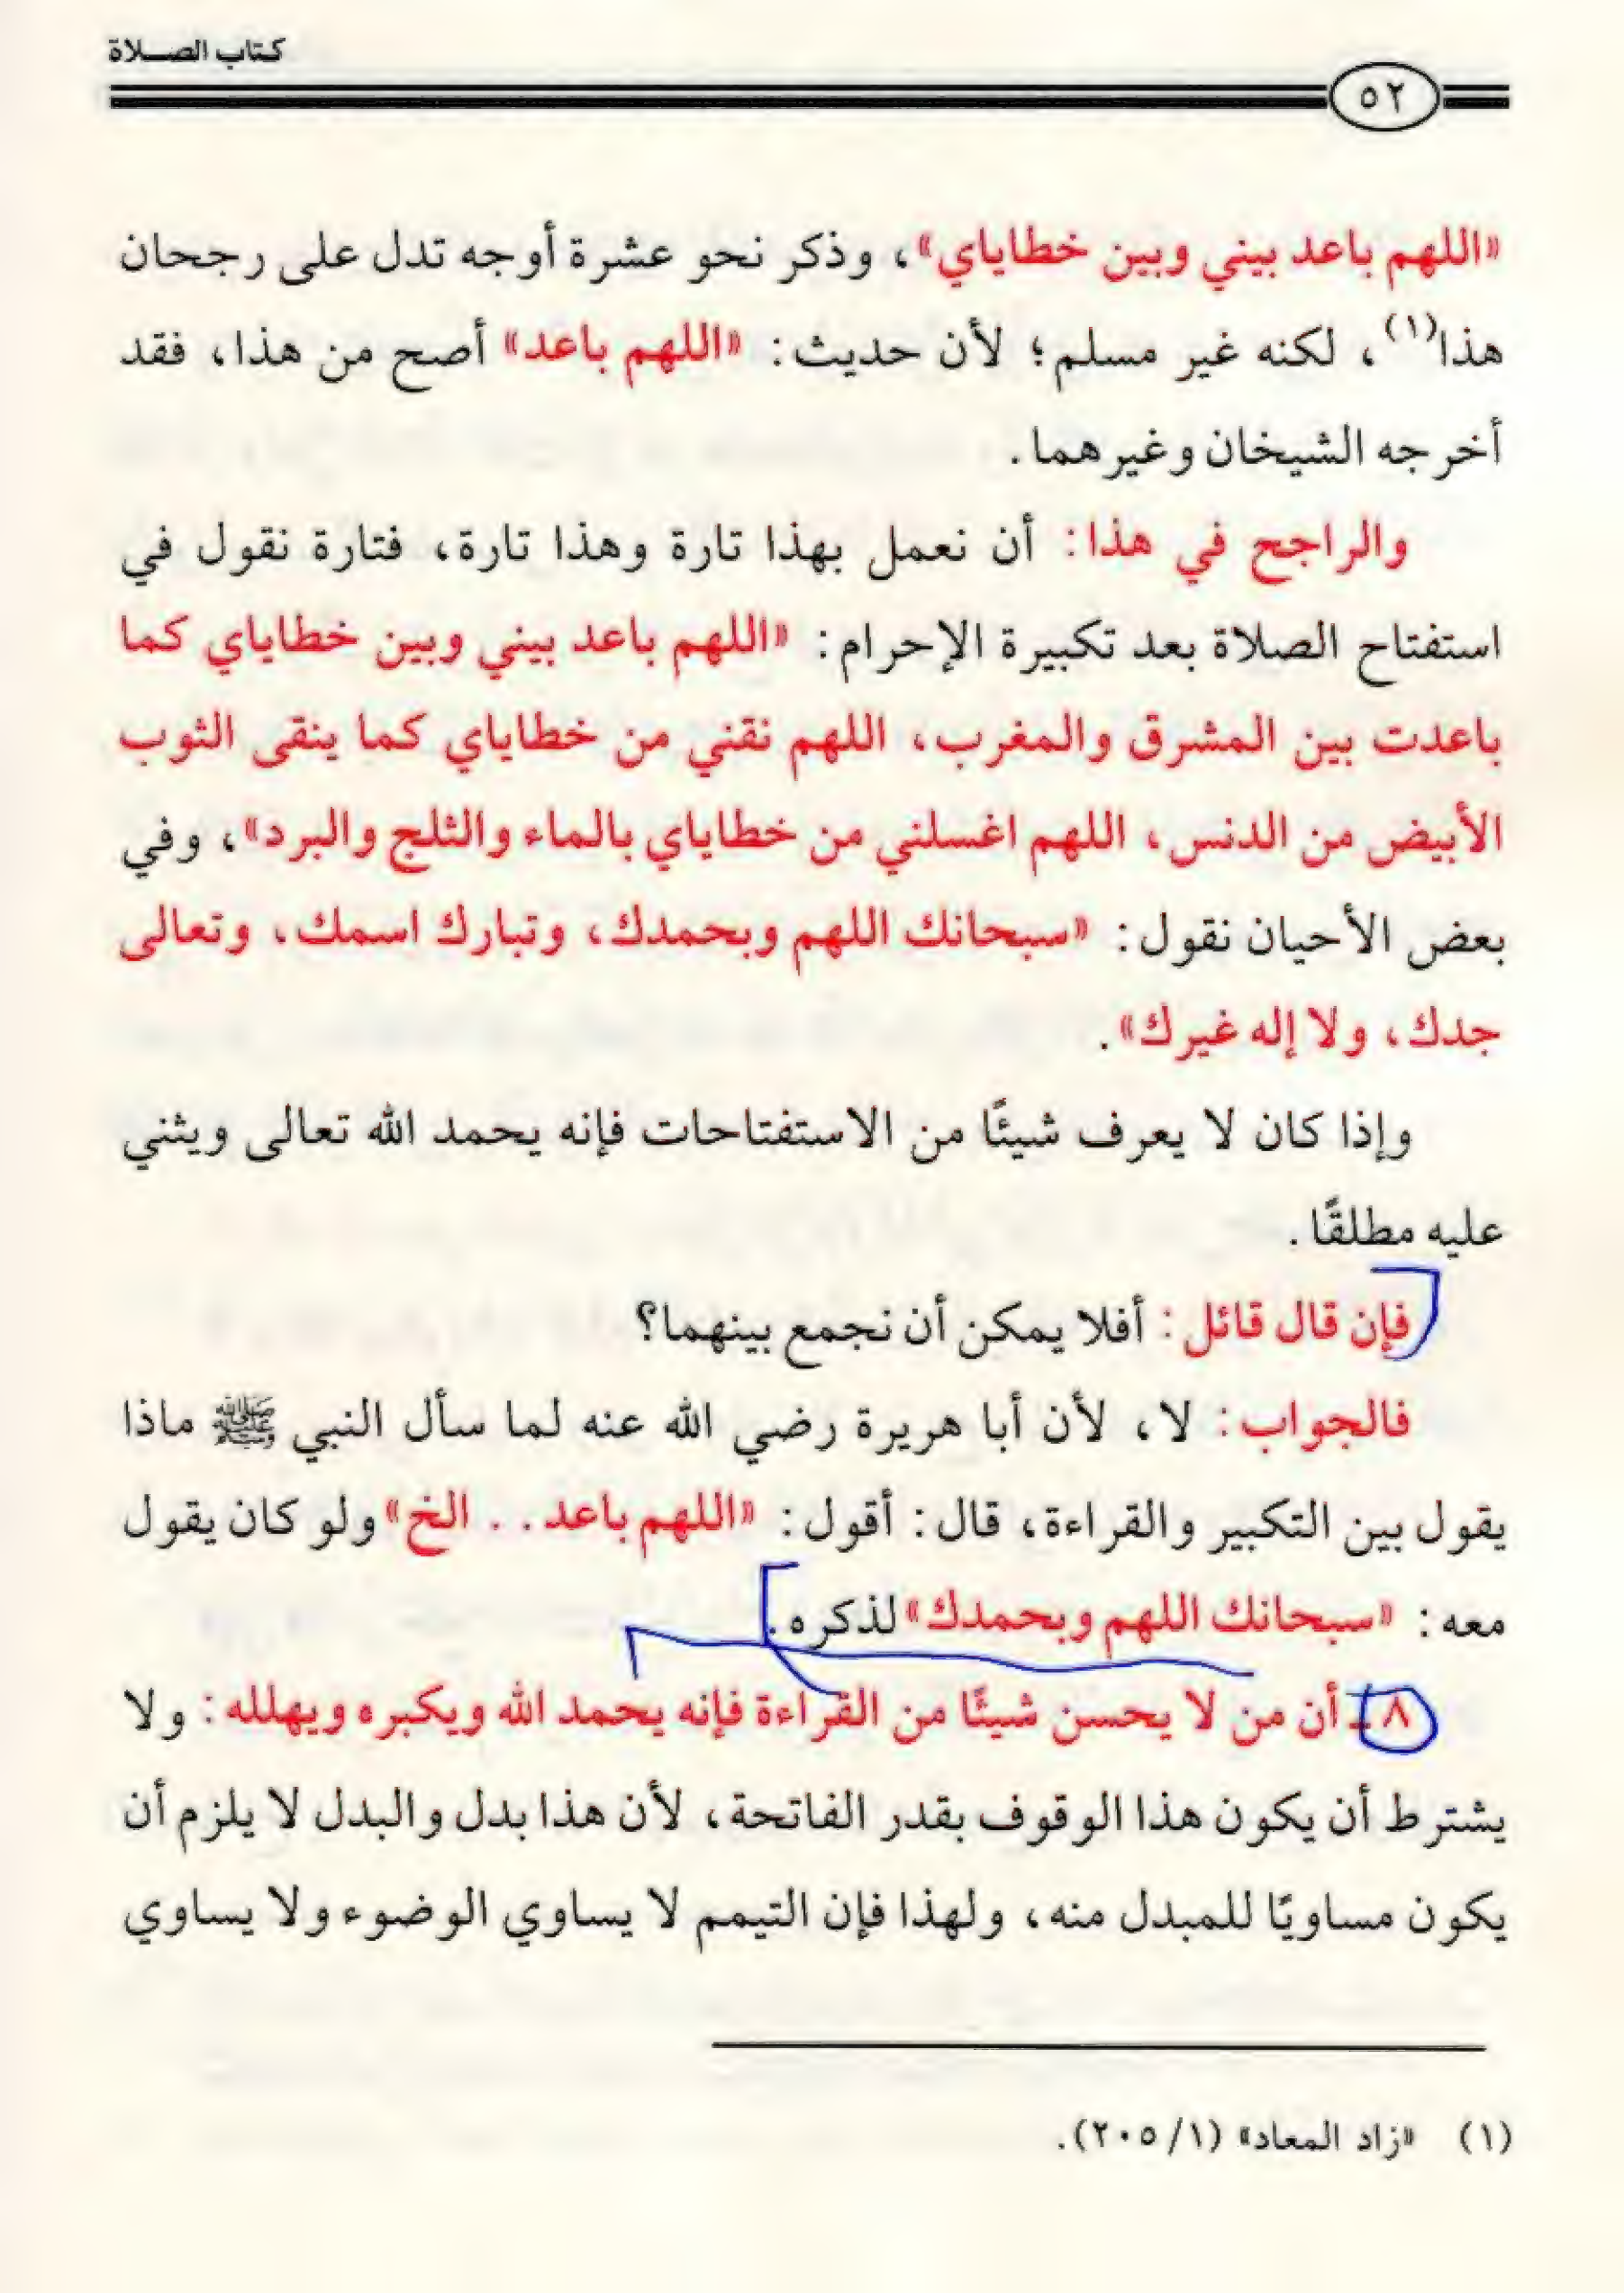 كتاب الصلاة
٥٢
«اللهم باعد بيني وبين خطاياي»، وذكر نحو عشرة أوجه تدل على رجحان
هذا(١)، لكنه غير مسلم؛ لأن حديث: «اللهم باعد» أصح من هذا، فقد
أخرجه الشيخان وغيرهما.
والراجح في هذا: أن نعمل بهذا تارة وهذا تارة، فتارة نقول في
استفتاح الصلاة بعد تكبيرة الإحرام: «اللهم باعد بيني وبين خطاياي كما
باعدت بين المشرق والمغرب، اللهم نقني من خطاياي كما ينقى الثوب
الأبيض من الدنس، اللهم اغسلني من خطاياي بالماء والثلج والبرد»، وفي
بعض الأحيان نقول: «سبحانك اللهم وبحمدك، وتبارك اسمك، وتعالى
جدك، ولا إله غيرك».
وإذا كان لا يعرف شيئًا من الاستفتاحات فإنه يحمد الله تعالى ويثني
عليه مطلقًا.
فإن قال قائل: أفلا يمكن أن نجمع بينهما؟
فالجواب: لا، لأن أبا هريرة رضي الله عنه لما سأل النبي ﷺ ماذا
يقول بين التكبير والقراءة، قال: أقول: «اللهم باعد.. الخ» ولو كان يقول
معه: «سبحانك اللهم وبحمدك» لذكره.
٨ ـ أن من لا يحسن شيئًا من القراءة فإنه يحمد الله ويكبره ويهلله: ولا
يشترط أن يكون هذا الوقوف بقدر الفاتحة، لأن هذا بدل والبدل لا يلزم أن
يكون مساويًا للمبدل منه، ولهذا فإن التيمم لا يساوي الوضوء ولا يساوي
(١) «زاد المعاد» (١/ ٢٠٥).